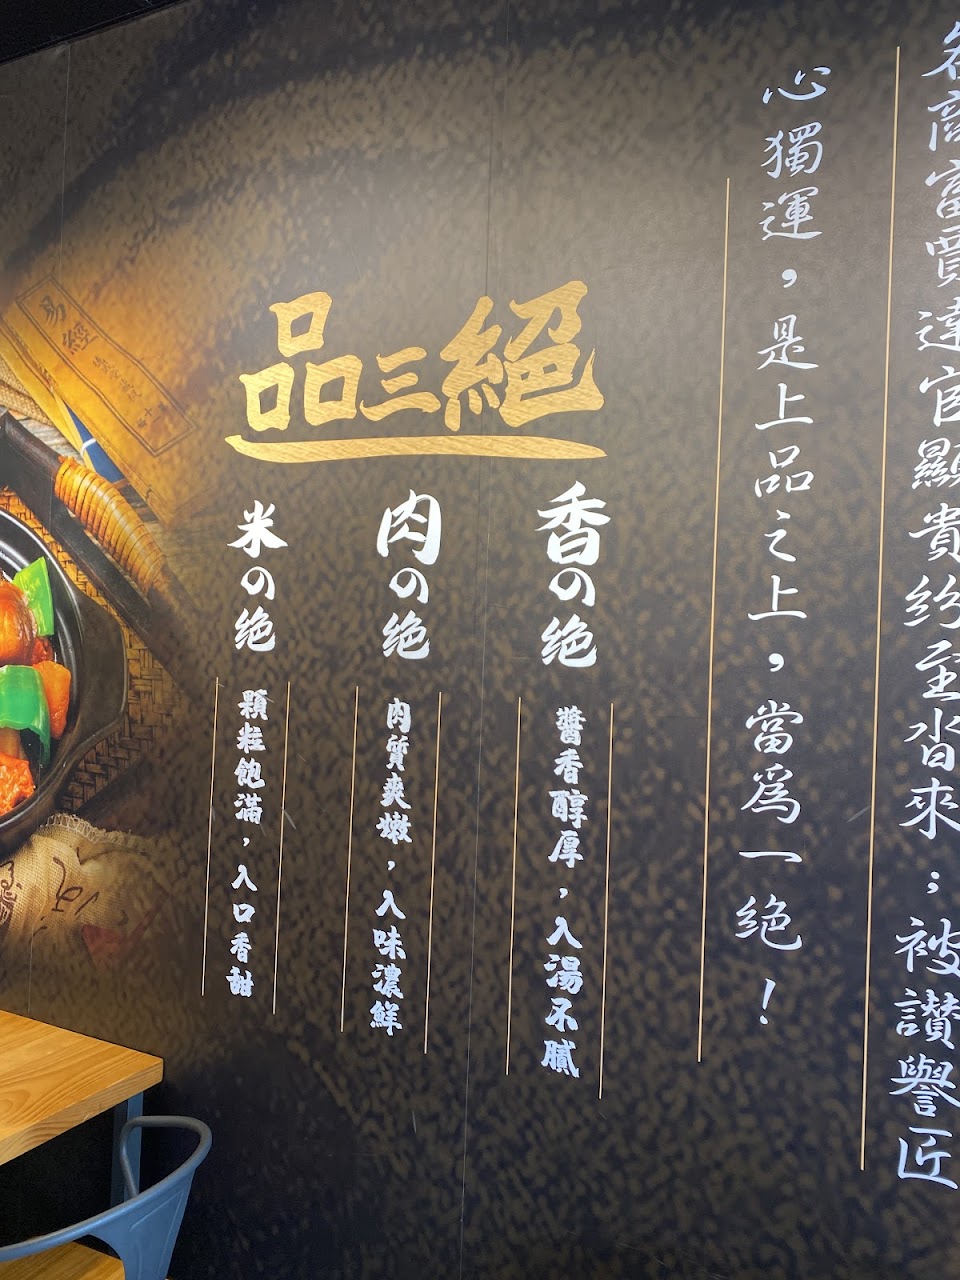 名商富賈達官顯貴紛至沓來；被讚譽匠
心獨運，是上品之上，當為一绝！
品三絕
香の绝
醬香醇厚，入湯不膩
肉の绝
肉質爽嫩，入味濃鮮
米の绝
顆粒飽滿，入口香甜
易經